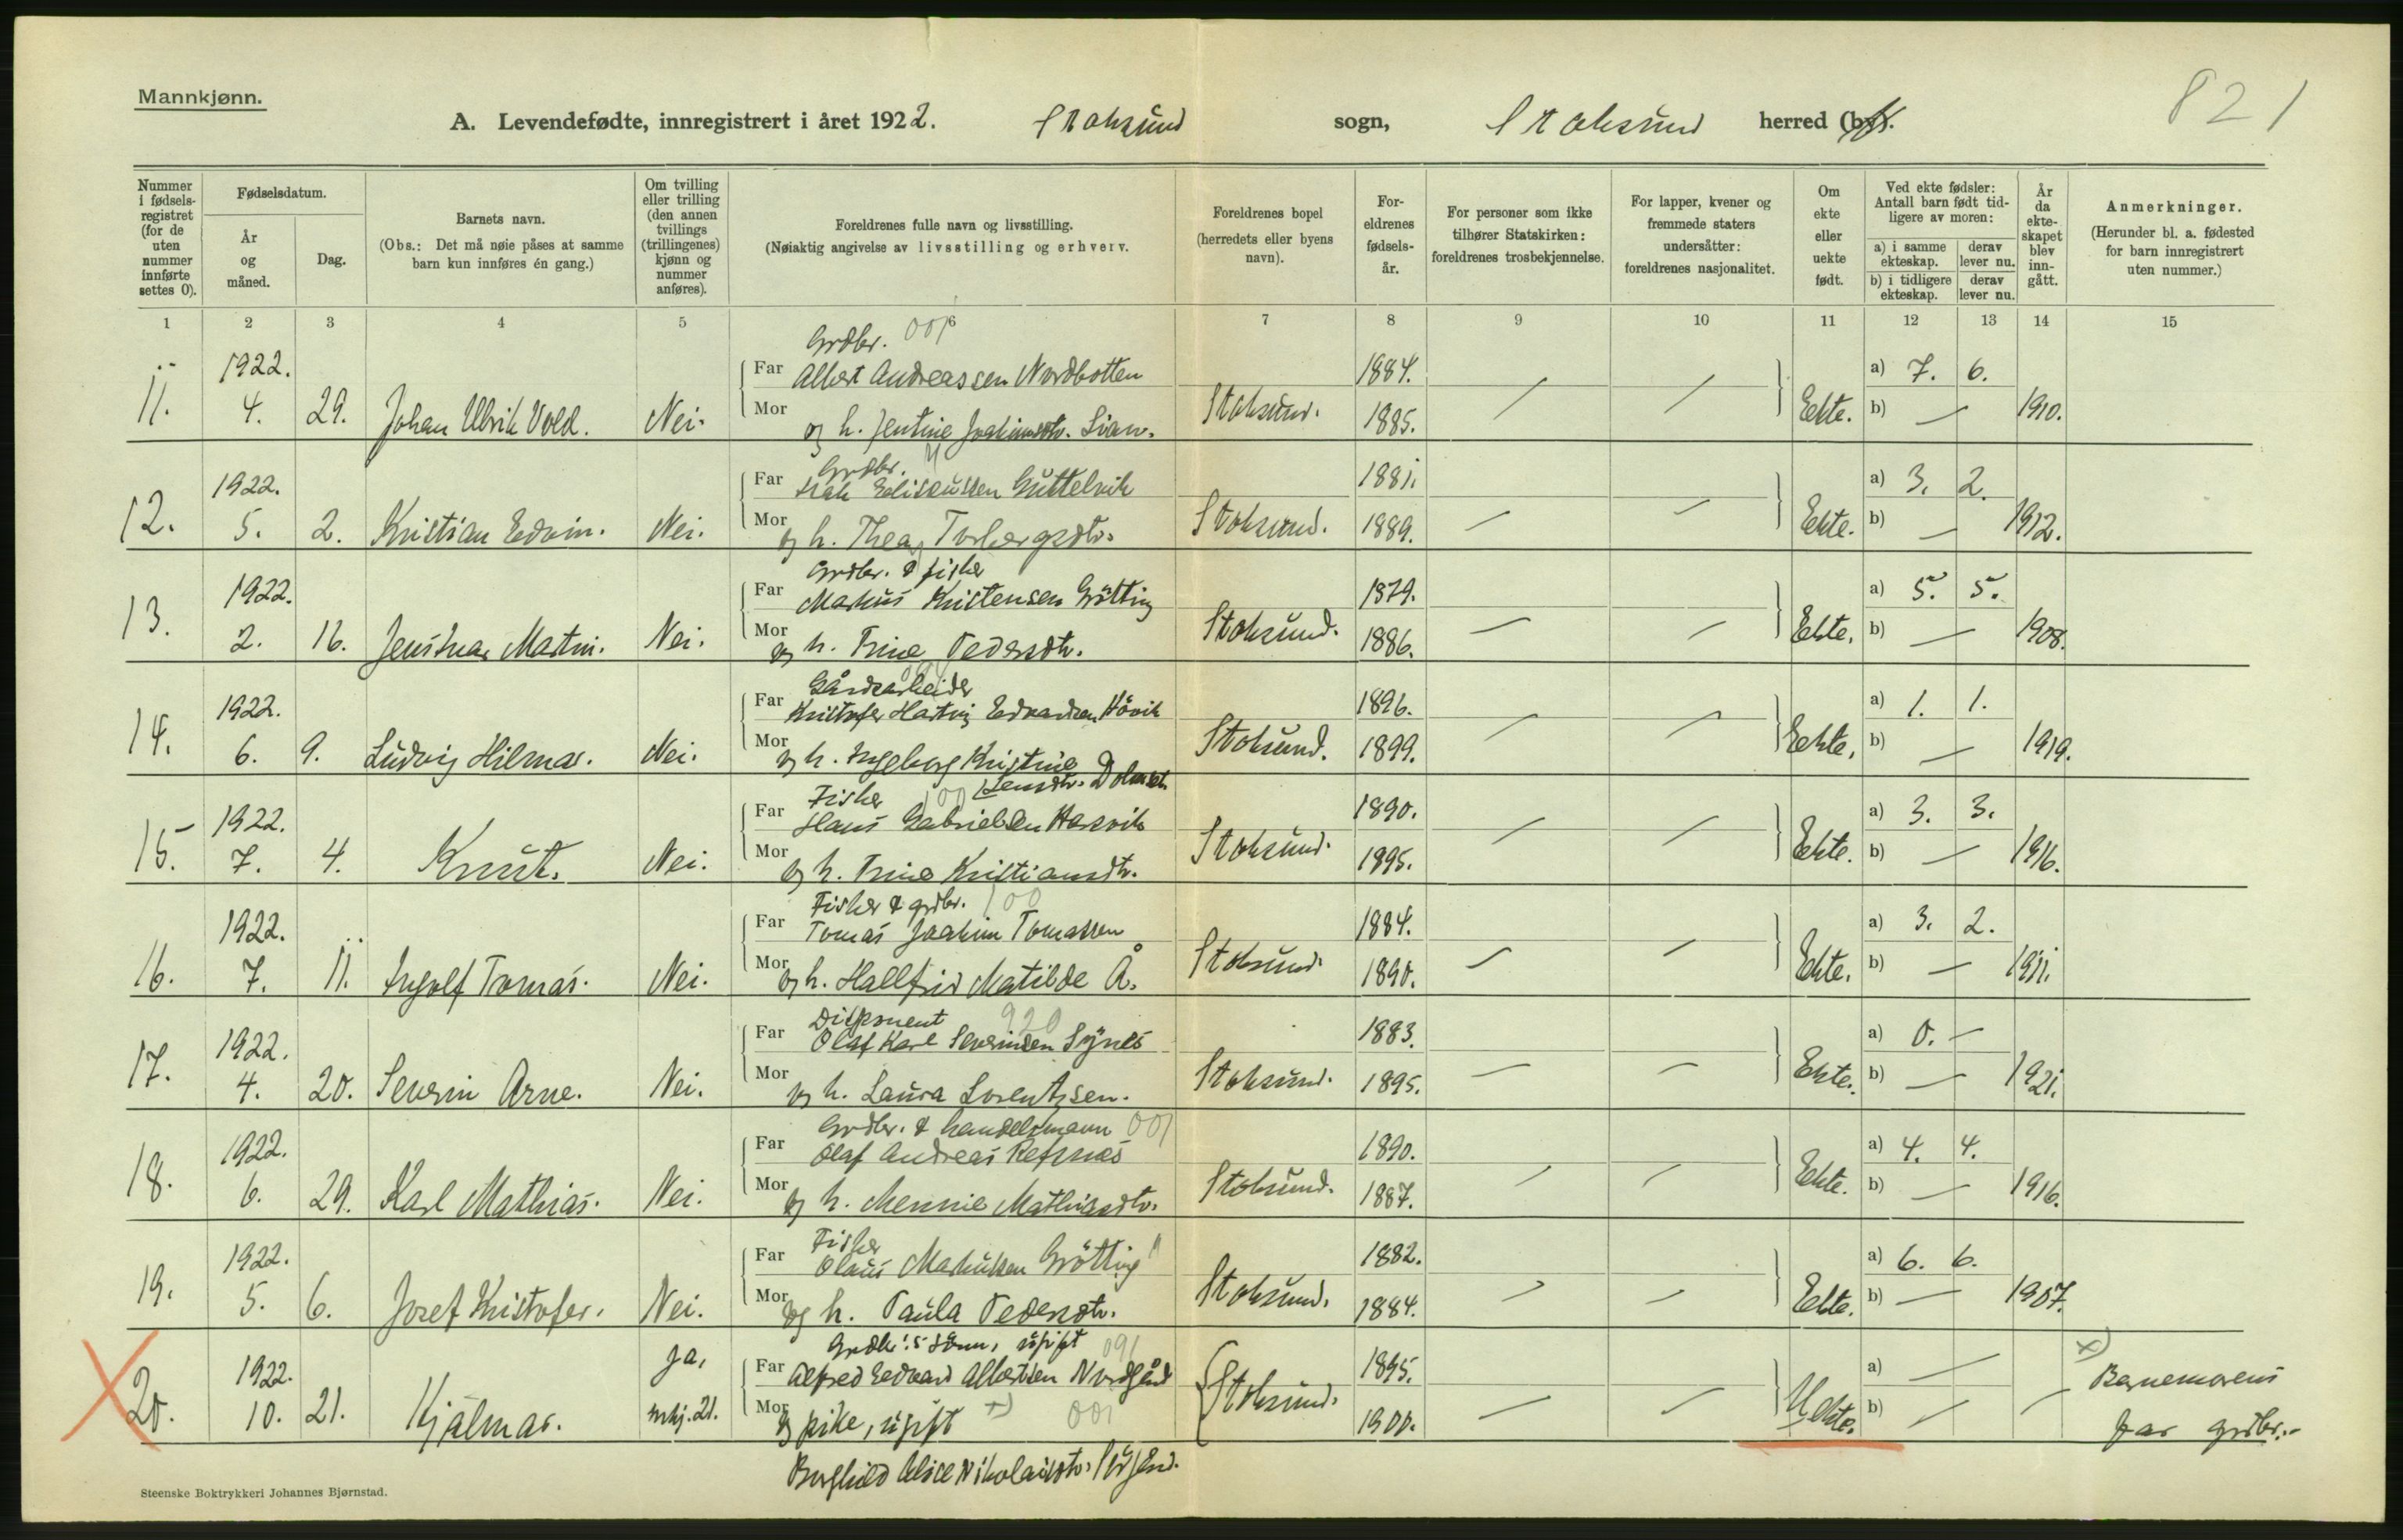 Mannkjønn.
821
A. Levendefødte, innregistrert i året 1922. Stoksund sogn, Stoksund herred (by).
Nummer i fødsels-registret (for de uten nummer innførte settes 0).
Fødselsdatum.
År og måned.
Dag.
Barnets navn.
(Obs.: Det må nøie påses at samme barn kun innføres én gang.)
Om tvilling eller trilling (den annen tvillings (trillingenes) kjønn og nummer anføres).
Foreldrenes fulle navn og livsstilling.
(Nøiaktig angivelse av livsstilling og erhverv.
Foreldrenes bopel (herredets eller byens navn).
For-eldrenes fødsels-år.
For personer som ikke tilhører Statskirken: foreldrenes trosbekjennelse.
For lapper, kvener og fremmede staters undersåtter: foreldrenes nasjonalitet.
Om ekte eller uekte født.
Ved ekte fødsler: Antall barn født tid-ligere av moren:
a) i samme ekteskap. derav lever nu.
b) i tidligere ekteskap. derav lever nu.
År da ekte-skapet blev inn-gått.
Anmerkninger.
(Herunder bl. a. fødested for barn innregistrert uten nummer.)
1 2 3 4 5 6 7 8 9 10 11 12 13 14 15
Grdbr. 001
1922. Far Albert Andreassen Nordbotten 1884. a) 7. 6.
11. 4. 29. Johan Ulrik Vold. Nei. Mor og h. Jentine Joakimsdtr. Lian. Stoksund. 1885. Ekte. b) — 1910.
Grdbr. "
1922. Far Isak Eliseussen Guttelvik 1881. a) 3. 2.
12. 5. 2. Kristian Edvin. Nei. Mor og h. Thea Torbergsdtr. Stoksund. 1889. Ekte. b) — 1912.
Grdbr. & fisker
1922. Far Markus Kristensen Grötting 1879. a) 5. 5.
13. 2. 16. Jens Ivar Martin. Nei. Mor og h. Trine Pedersdtr. Stoksund. 1886. Ekte. b) — 1908.
Gårdsarbeider
1922. Far Kristofer Hartvig Edvardsen Hövik 1896. a) 1. 1.
14. 6. 9. Ludvig Hilmar. Nei. Mor og h. Ingeborg Kristine Stoksund. 1899. Ekte. b) — 1919.
Jensdtr. Dolmset
Fisker 100
1922. Far Hans Gabrielsen Harsvik 1890. a) 3. 3.
15. 7. 4. Knut. Nei. Mor og h. Trine Kristiansdtr. Stoksund. 1895. Ekte. b) — 1916.
Fisker & grdbr. 100
1922. Far Tomas Joakim Tomassen 1884. a) 3. 2.
16. 7. 11. Ingolf Tomas. Nei. Mor og h. Hallfrid Matilde Å. Stoksund. 1890. Ekte. b) — 1911.
Disponent 920
1922. Far Olaf Karl Severinsen Synes 1883. a) 0. —
17. 4. 20. Severin Arne. Nei. Mor og h. Laura Lorentzsen. Stoksund. 1895. Ekte. b) — 1921.
Grdbr. & handelsmann 001
1922. Far Olaf Andreas Refsnes 1890. a) 4. 4.
18. 6. 29. Karl Mathias. Nei. Mor og h. Mennie Mathiasdtr. Stoksund. 1887. Ekte. b) — 1916.
Fisker "
1922. Far Olaus Markussen Grötting 1882. a) 6. 6.
19. 5. 6. Josef Kristofer. Nei. Mor og h. Paula Pedersdtr. Stoksund. 1884. Ekte. b) — 1907.
Grdbr's sönn, ugift 091
1922. Ja, Far Alfred Edvard Albertsen Nordgård 1895. a) — +) Barnemorens
20. 10. 21. Hjalmar. mkj. 21. Mor og pike, ugift +) 001 Stoksund. 1900. Uekte. b) — far grdbr.
Borghild Alice Nikolaisdtr.
Steenske Boktrykkeri Johannes Bjørnstad.